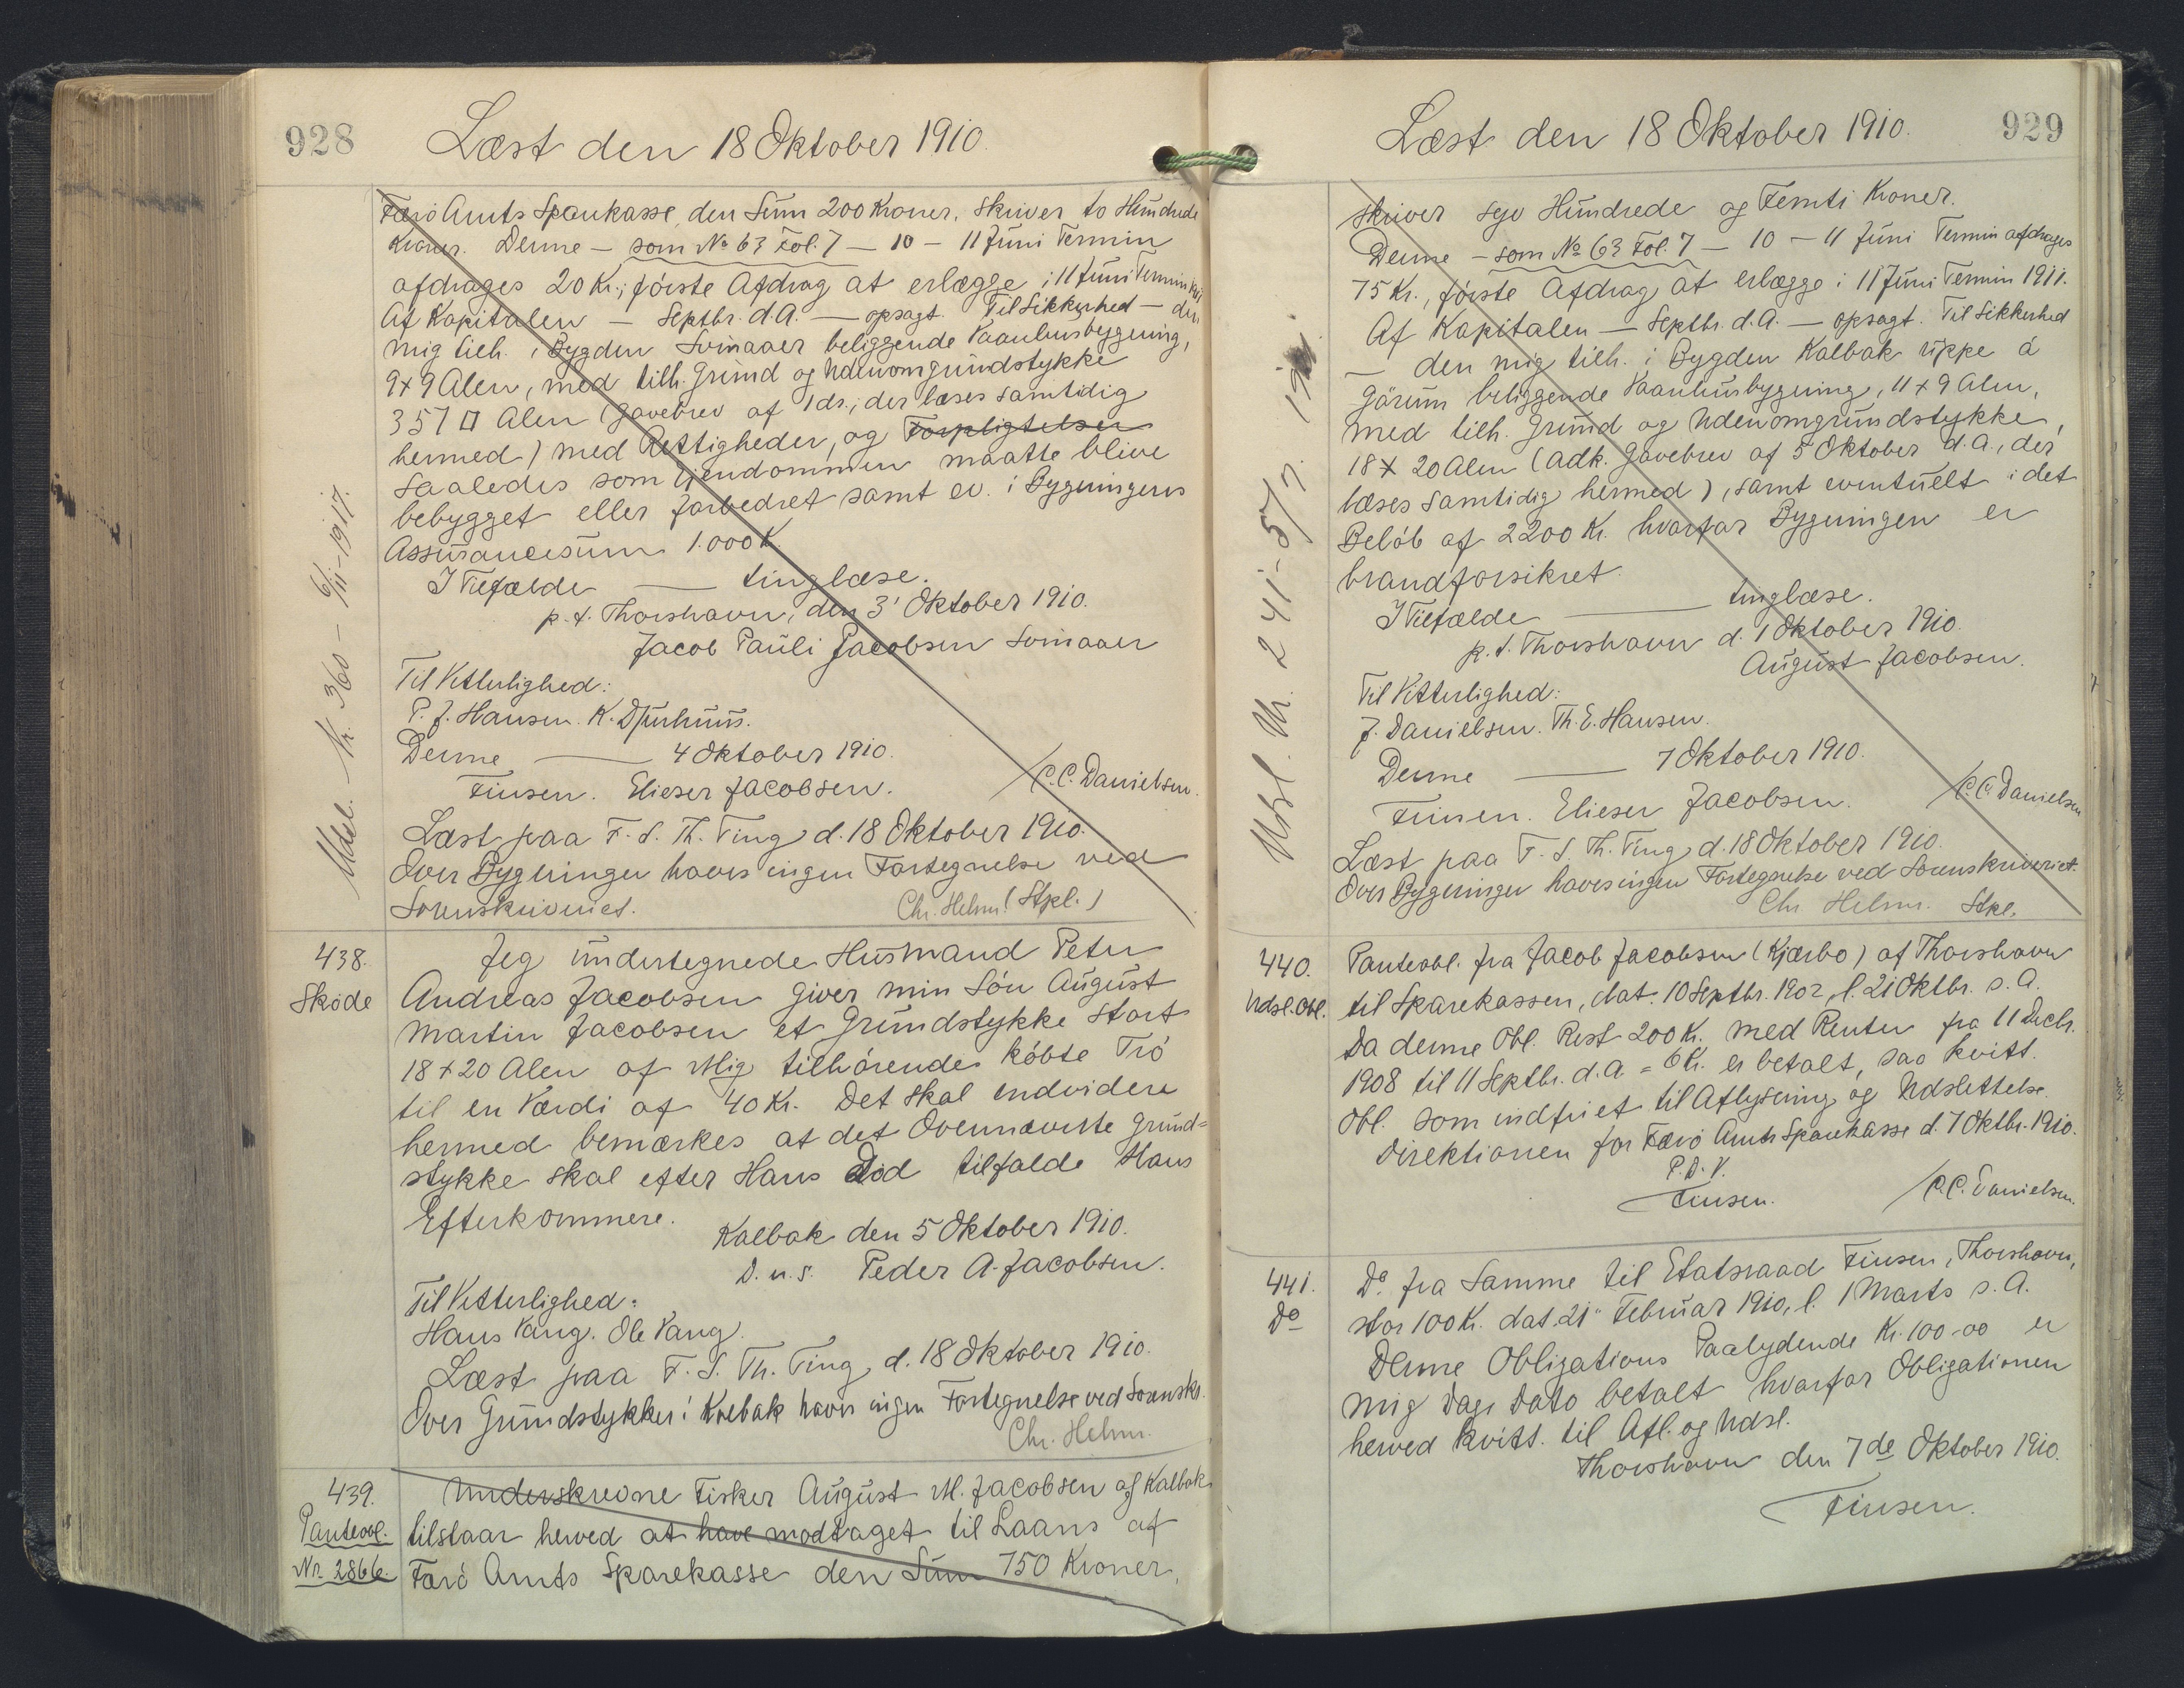 928
Læst den 18 Oktober 1910.
Færö Amts Sparekasse, den Sum 200 Kroner, skriver to Hundrede
Kroner. Denne — som No 63 Fol. 7 — 10 — 11 Juni Termin
afdrages 20 Kr.; første Afdrag at erlægge i 11 Juni Termin
Af Kapitalen — Septbr. d.A. — opsagt. Til Sikkerhed — den
mig tilh. i Bygden beliggende Vaanhusbygning,
9 x 9 Alen, med tilh. Grund og Udenomgrundstykke
357 □ Alen (Gavebrev af 1 ds., der læses samtidig
hermed) med Rettigheder, og Forpligtelser
saaledes som Ejendommen maatte blive
bebygget eller forbedret samt ev. i Bygningens
Assurancesum 1.000 K.
I Tilfælde — tinglæse.
p.t. Thorshavn, den 3' Oktober 1910.
Jacob Pauli Jacobsen
Til Vitterlighed:
P. J. Hansen. K. Djurhuus.
Denne — 4 Oktober 1910.
Finsen. Elieser Jacobsen. /C.C. Danielsen.
Læst paa F. S. Th. Ting d. 18 Oktober 1910.
Over Bygninger haves ingen Fortegnelse ved
Sorenskriveriet. Chr. Helm. (Stpl.)
Udsl. Nr. 360 - 6/11-1917.
438.
Sköde
Jeg undertegnede Husmand Peter
Andreas Jacobsen giver min Sön August
Martin Jacobsen et Grundstykke stort
18 x 20 Alen af Mig tilhörende köbte Trö
til en Værdi af 40 Kr. Det skal endvidere
hermed bemærkes at det Ovennævnte Grund=
stykke skal efter Hans Död tilfalde Hans
Efterkommere.
Kalbak den 5 Oktober 1910.
D.u.s. Peder A. Jacobsen.
Til Vitterlighed:
Hans Vang. Ole Vang.
Læst paa F. S. Th. Ting, d. 18 Oktober 1910.
Over Grundstykker i Kalbak haves ingen Fortegnelse ved Sorenskr.
Chr. Helm.
439.
Panteobl.
Nr. 2866.
Underskrevne Fisker August M. Jacobsen af Kalbak
tilstaar herved at have modtaget til Laans af
Færö Amts Sparekasse den Sum 750 Kroner,
929
Læst den 18 Oktober 1910.
skriver syv Hundrede og Femti Kroner.
Denne — som No 63 Fol. 7 — 10 — 11 Juni Termin afdrages
75 Kr., förste Afdrag at erlægge i 11 Juni Termin 1911.
Af Kapitalen — Septbr. d.A. — opsagt. Til Sikkerhed
— den mig tilh. i Bygden Kalbak uppe á
Görum beliggende Vaanhusbygning, 11 x 9 Alen,
med tilh. Grund og Udenomgrundstykke,
18 x 20 Alen (Adk. Gavebrev af 5 Oktober d.A., der
læses samtidig hermed), samt eventuelt i det
Belöb af 2200 Kr. hvorfor Bygningen er
brandforsikret.
I Tilfælde — tinglæse.
p.t. Thorshavn d. 1 Oktober 1910.
August Jacobsen.
Til Vitterlighed:
J. Danielsen. Th. E. Hansen.
Denne — 7 Oktober 1910.
Finsen. Elieser Jacobsen. /C.C. Danielsen
Læst paa F. S. Th. Ting, d. 18 Oktober 1910.
Over Bygninger haves ingen Fortegnelse ved Sorenskriveriet.
Chr. Helm. Stpl.
Udsl. Nr. 241 - 5/7.
440.
Udsl. Obl.
Panteobl. fra Jacob Jacobsen (Kjærbo) af Thorshavn
til Sparekassen, dat. 10 Septbr. 1902, l. 21 Oktbr. s.A.
Da denne Obl. Rest 200 K. med Renter fra 11 Decbr.
1908 til 11 Septbr. d.A. = 6 Kr. er betalt, saa kvitt.
Obl. som indfriet til Aflysning og Udslettelse.
Direktionen for Færö Amts Sparekasse d. 7 Oktbr. 1910.
P.D.V.
Finsen. /C.C. Danielsen.
441.
Do
Do fra Samme til Etatsraad Finsen, Thorshavn,
stor 100 K. dat. 21" Februar 1910, l. 1 Marts s.A.
Denne Obligations Paalydende Kr. 100-00 er
mig Dags Dato betalt hvorfor Obligationen
herved kvitt. til Afl. og Udsl.
Thorshavn den 7de Oktober 1910.
Finsen.